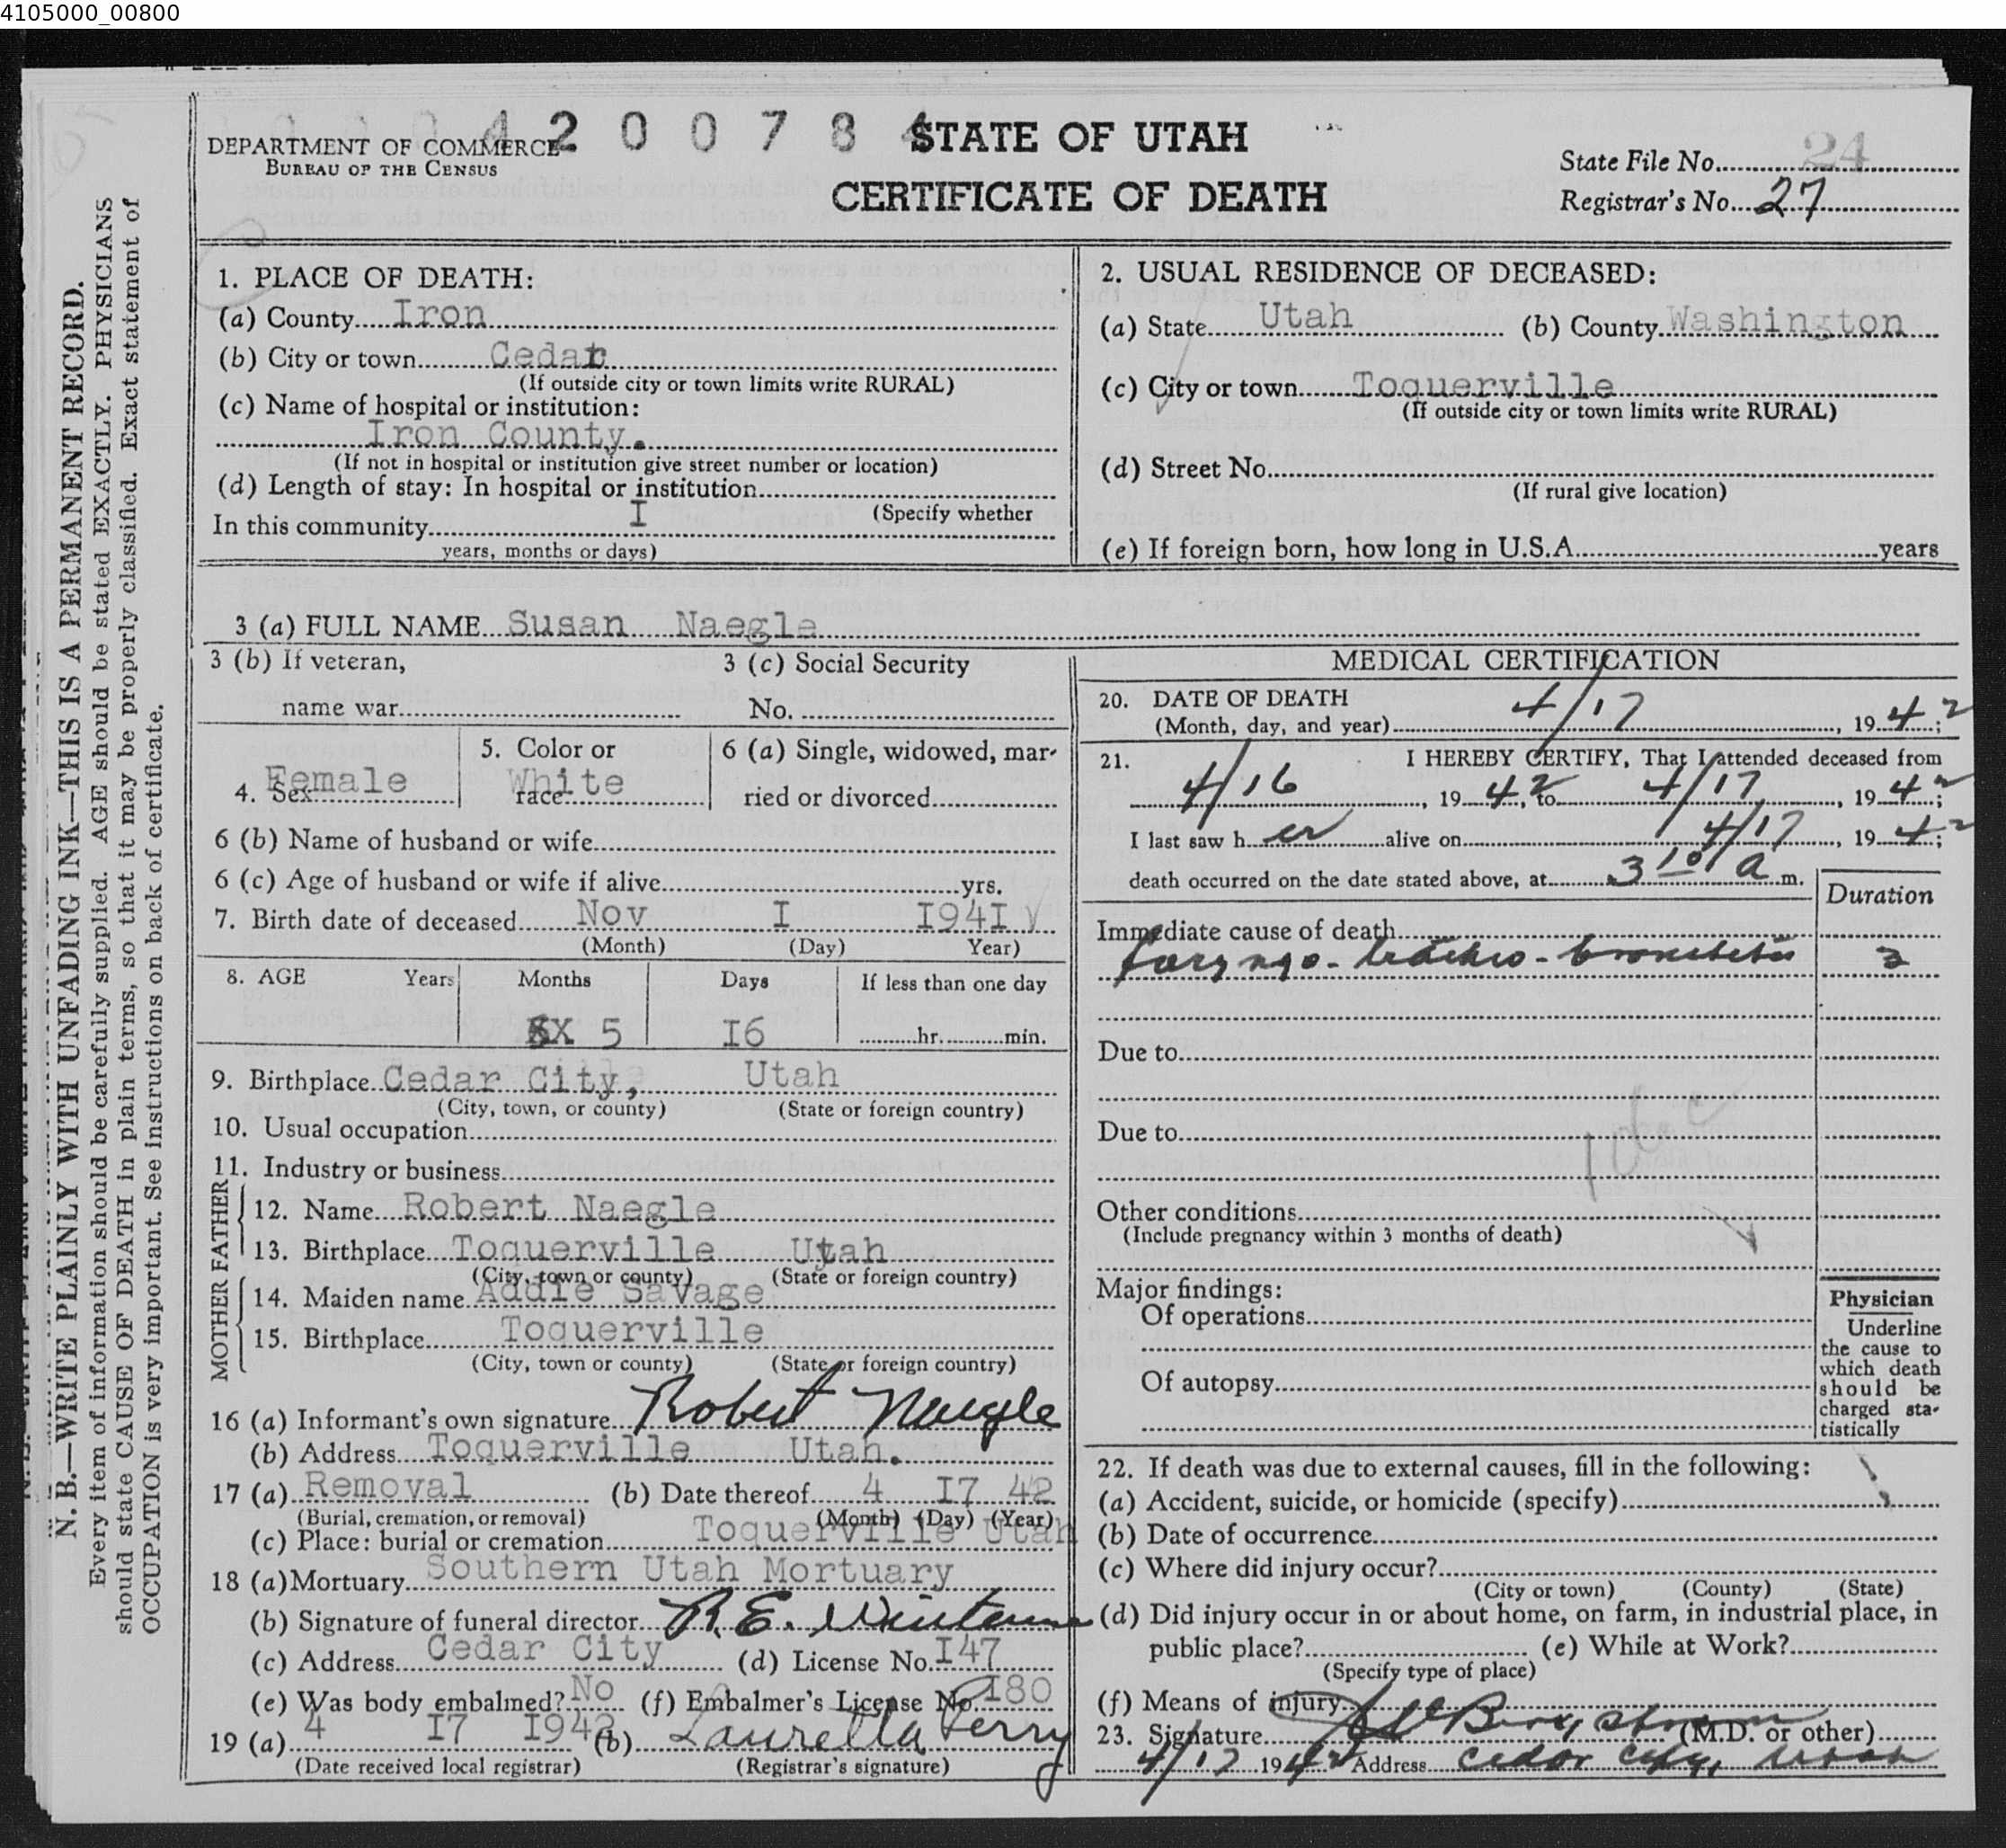 4105000_00800
DEPARTMENT OF COMMERCE
BUREAU OF THE CENSUS
4 2 0 0 7 8 4
STATE OF UTAH
CERTIFICATE OF DEATH
State File No. 24
Registrar's No. 27
N. B.—WRITE PLAINLY WITH UNFADING INK—THIS IS A PERMANENT RECORD.
Every item of information should be carefully supplied. AGE should be stated EXACTLY. PHYSICIANS
should state CAUSE OF DEATH in plain terms, so that it may be properly classified. Exact statement of
OCCUPATION is very important. See instructions on back of certificate.
1. PLACE OF DEATH:
(a) County Iron
(b) City or town Cedar
(If outside city or town limits write RURAL)
(c) Name of hospital or institution:
Iron County.
(If not in hospital or institution give street number or location)
(d) Length of stay: In hospital or institution
(Specify whether
In this community I
years, months or days)
2. USUAL RESIDENCE OF DECEASED:
(a) State Utah (b) County Washington
(c) City or town Toquerville
(If outside city or town limits write RURAL)
(d) Street No.
(If rural give location)
(e) If foreign born, how long in U.S.A. years
3 (a) FULL NAME Susan Naegle
3 (b) If veteran,
name war
3 (c) Social Security
No.
4. Sex Female
5. Color or
race White
6 (a) Single, widowed, mar-
ried or divorced
6 (b) Name of husband or wife
6 (c) Age of husband or wife if alive yrs.
7. Birth date of deceased Nov I I94I
(Month) (Day) Year)
8. AGE Years Months Days If less than one day
5 I6 hr. min.
9. Birthplace Cedar City, Utah
(City, town, or county) (State or foreign country)
10. Usual occupation
11. Industry or business
FATHER
12. Name Robert Naegle
13. Birthplace Toquerville Utah
(City, town or county) (State or foreign country)
MOTHER
14. Maiden name Addie Savage
15. Birthplace Toquerville
(City, town or county) (State or foreign country)
16 (a) Informant's own signature Robert Naegle
(b) Address Toquerville Utah.
17 (a) Removal (b) Date thereof 4 I7 42
(Burial, cremation, or removal) (Month) (Day) (Year)
(c) Place: burial or cremation Toquerville Utah
18 (a) Mortuary Southern Utah Mortuary
(b) Signature of funeral director R. E.
(c) Address Cedar City (d) License No. I47
(e) Was body embalmed? No (f) Embalmer's License No. I80
19 (a) 4 I7 I942 (b) Laurella Perry
(Date received local registrar) (Registrar's signature)
MEDICAL CERTIFICATION
20. DATE OF DEATH
(Month, day, and year) 4/17, 1942;
21. I HEREBY CERTIFY, That I attended deceased from
4/16, 1942, to 4/17, 1942;
I last saw her alive on 4/17, 1942;
death occurred on the date stated above, at 3 10 a m.
Duration
Immediate cause of death
laryngo-tracheo-bronchitis 3
Due to
Due to
Other conditions
(Include pregnancy within 3 months of death)
Major findings:
Of operations
Of autopsy
Physician
Underline
the cause to
which death
should be
charged sta-
tistically
22. If death was due to external causes, fill in the following:
(a) Accident, suicide, or homicide (specify)
(b) Date of occurrence
(c) Where did injury occur?
(City or town) (County) (State)
(d) Did injury occur in or about home, on farm, in industrial place, in
public place? (e) While at Work?
(Specify type of place)
(f) Means of injury
23. Signature Bergstrom (M.D. or other)
4/17 1942 Address Cedar City, Utah